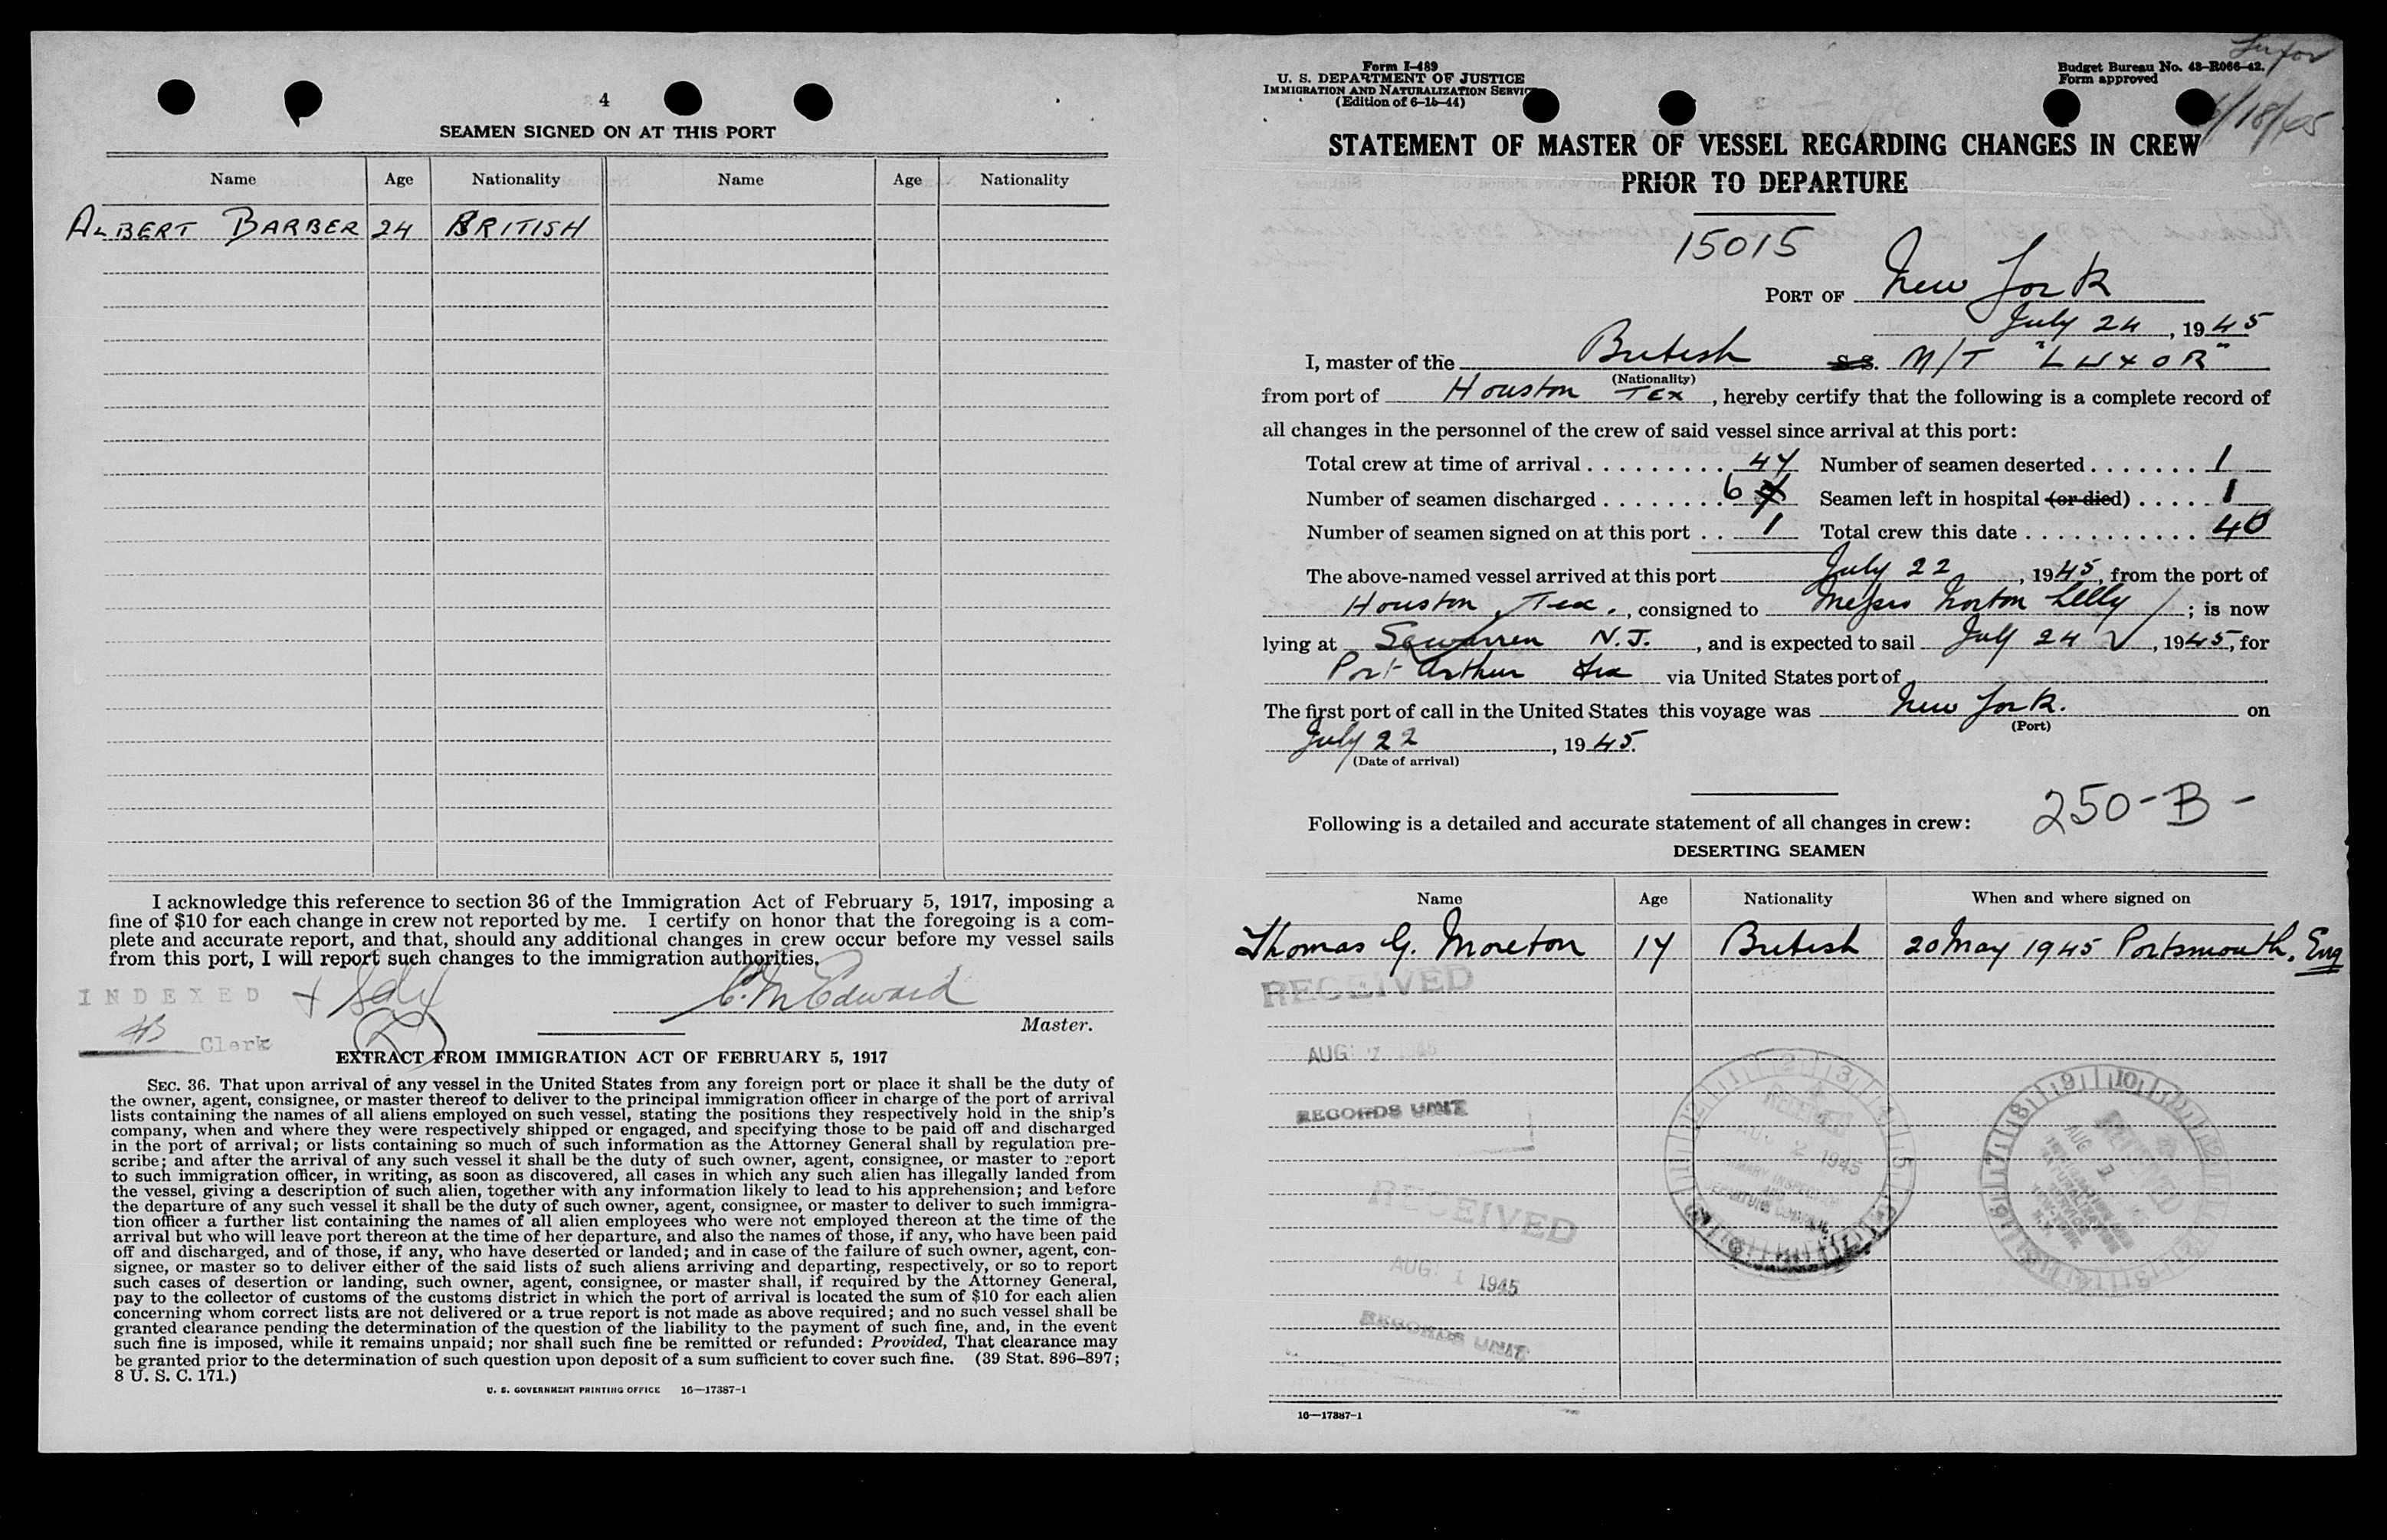 4
SEAMEN SIGNED ON AT THIS PORT
Name Age Nationality Name Age Nationality
ALBERT BARBER 24 BRITISH
I acknowledge this reference to section 36 of the Immigration Act of February 5, 1917, imposing a
fine of $10 for each change in crew not reported by me. I certify on honor that the foregoing is a com-
plete and accurate report, and that, should any additional changes in crew occur before my vessel sails
from this port, I will report such changes to the immigration authorities.
INDEXED
C. M Edward
Master.
Clerk
EXTRACT FROM IMMIGRATION ACT OF FEBRUARY 5, 1917
SEC. 36. That upon arrival of any vessel in the United States from any foreign port or place it shall be the duty of
the owner, agent, consignee, or master thereof to deliver to the principal immigration officer in charge of the port of arrival
lists containing the names of all aliens employed on such vessel, stating the positions they respectively hold in the ship's
company, when and where they were respectively shipped or engaged, and specifying those to be paid off and discharged
in the port of arrival; or lists containing so much of such information as the Attorney General shall by regulation pre-
scribe; and after the arrival of any such vessel it shall be the duty of such owner, agent, consignee, or master to report
to such immigration officer, in writing, as soon as discovered, all cases in which any such alien has illegally landed from
the vessel, giving a description of such alien, together with any information likely to lead to his apprehension; and before
the departure of any such vessel it shall be the duty of such owner, agent, consignee, or master to deliver to such immigra-
tion officer a further list containing the names of all alien employees who were not employed thereon at the time of the
arrival but who will leave port thereon at the time of her departure, and also the names of those, if any, who have been paid
off and discharged, and of those, if any, who have deserted or landed; and in case of the failure of such owner, agent, con-
signee, or master so to deliver either of the said lists of such aliens arriving and departing, respectively, or so to report
such cases of desertion or landing, such owner, agent, consignee, or master shall, if required by the Attorney General,
pay to the collector of customs of the customs district in which the port of arrival is located the sum of $10 for each alien
concerning whom correct lists are not delivered or a true report is not made as above required; and no such vessel shall be
granted clearance pending the determination of the question of the liability to the payment of such fine, and, in the event
such fine is imposed, while it remains unpaid; nor shall such fine be remitted or refunded: Provided, That clearance may
be granted prior to the determination of such question upon deposit of a sum sufficient to cover such fine. (39 Stat. 896–897;
8 U. S. C. 171.)
U. S. GOVERNMENT PRINTING OFFICE 16—17387-1
Form I-489
U. S. DEPARTMENT OF JUSTICE
IMMIGRATION AND NATURALIZATION SERVICE
(Edition of 6-15-44)
Budget Bureau No. 43-R066-42.
Form approved
STATEMENT OF MASTER OF VESSEL REGARDING CHANGES IN CREW
PRIOR TO DEPARTURE
15015
PORT OF New York
July 24, 1945
I, master of the British S.S. M/T "LUXOR"
(Nationality)
from port of Houston TEX, hereby certify that the following is a complete record of
all changes in the personnel of the crew of said vessel since arrival at this port:
Total crew at time of arrival . . . . . . . . . 47 Number of seamen deserted . . . . . . . 1
Number of seamen discharged . . . . . . . . 6 7 Seamen left in hospital (or died) . . . . . 1
Number of seamen signed on at this port . . 1 Total crew this date . . . . . . . . . . . 40
The above-named vessel arrived at this port July 22, 1945, from the port of
Houston, Tex., consigned to Messrs Norton Lilly; is now
lying at Sewarren N.J., and is expected to sail July 24, 1945, for
Port Arthur Tex via United States port of
The first port of call in the United States this voyage was New York. on
(Port)
July 22, 1945.
(Date of arrival)
250-B-
Following is a detailed and accurate statement of all changes in crew:
DESERTING SEAMEN
Name Age Nationality When and where signed on
Thomas G. Moreton 17 British 20 May 1945 Portsmouth, Eng
RECEIVED
AUG 1945
RECORDS UNIT
RECEIVED
AUG 2 1945
RECEIVED
AUG 1 1945
RECORDS UNIT
16—17387-1